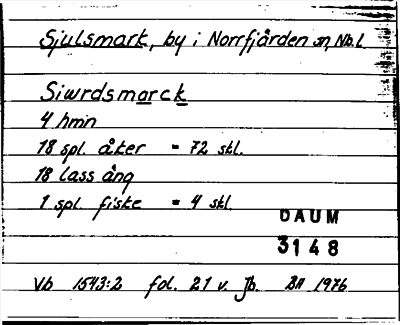 Sjulsmark, by i Norrfjärden sn, Nb. l.
Siwrdsmarck
4 hmn
18 spl. åker = 72 skl.
18 lass äng
1 spl. fiske = 4 skl.
DAUM
3148
Vb 1543:2 fol. 21 v. Jb. BH 1976